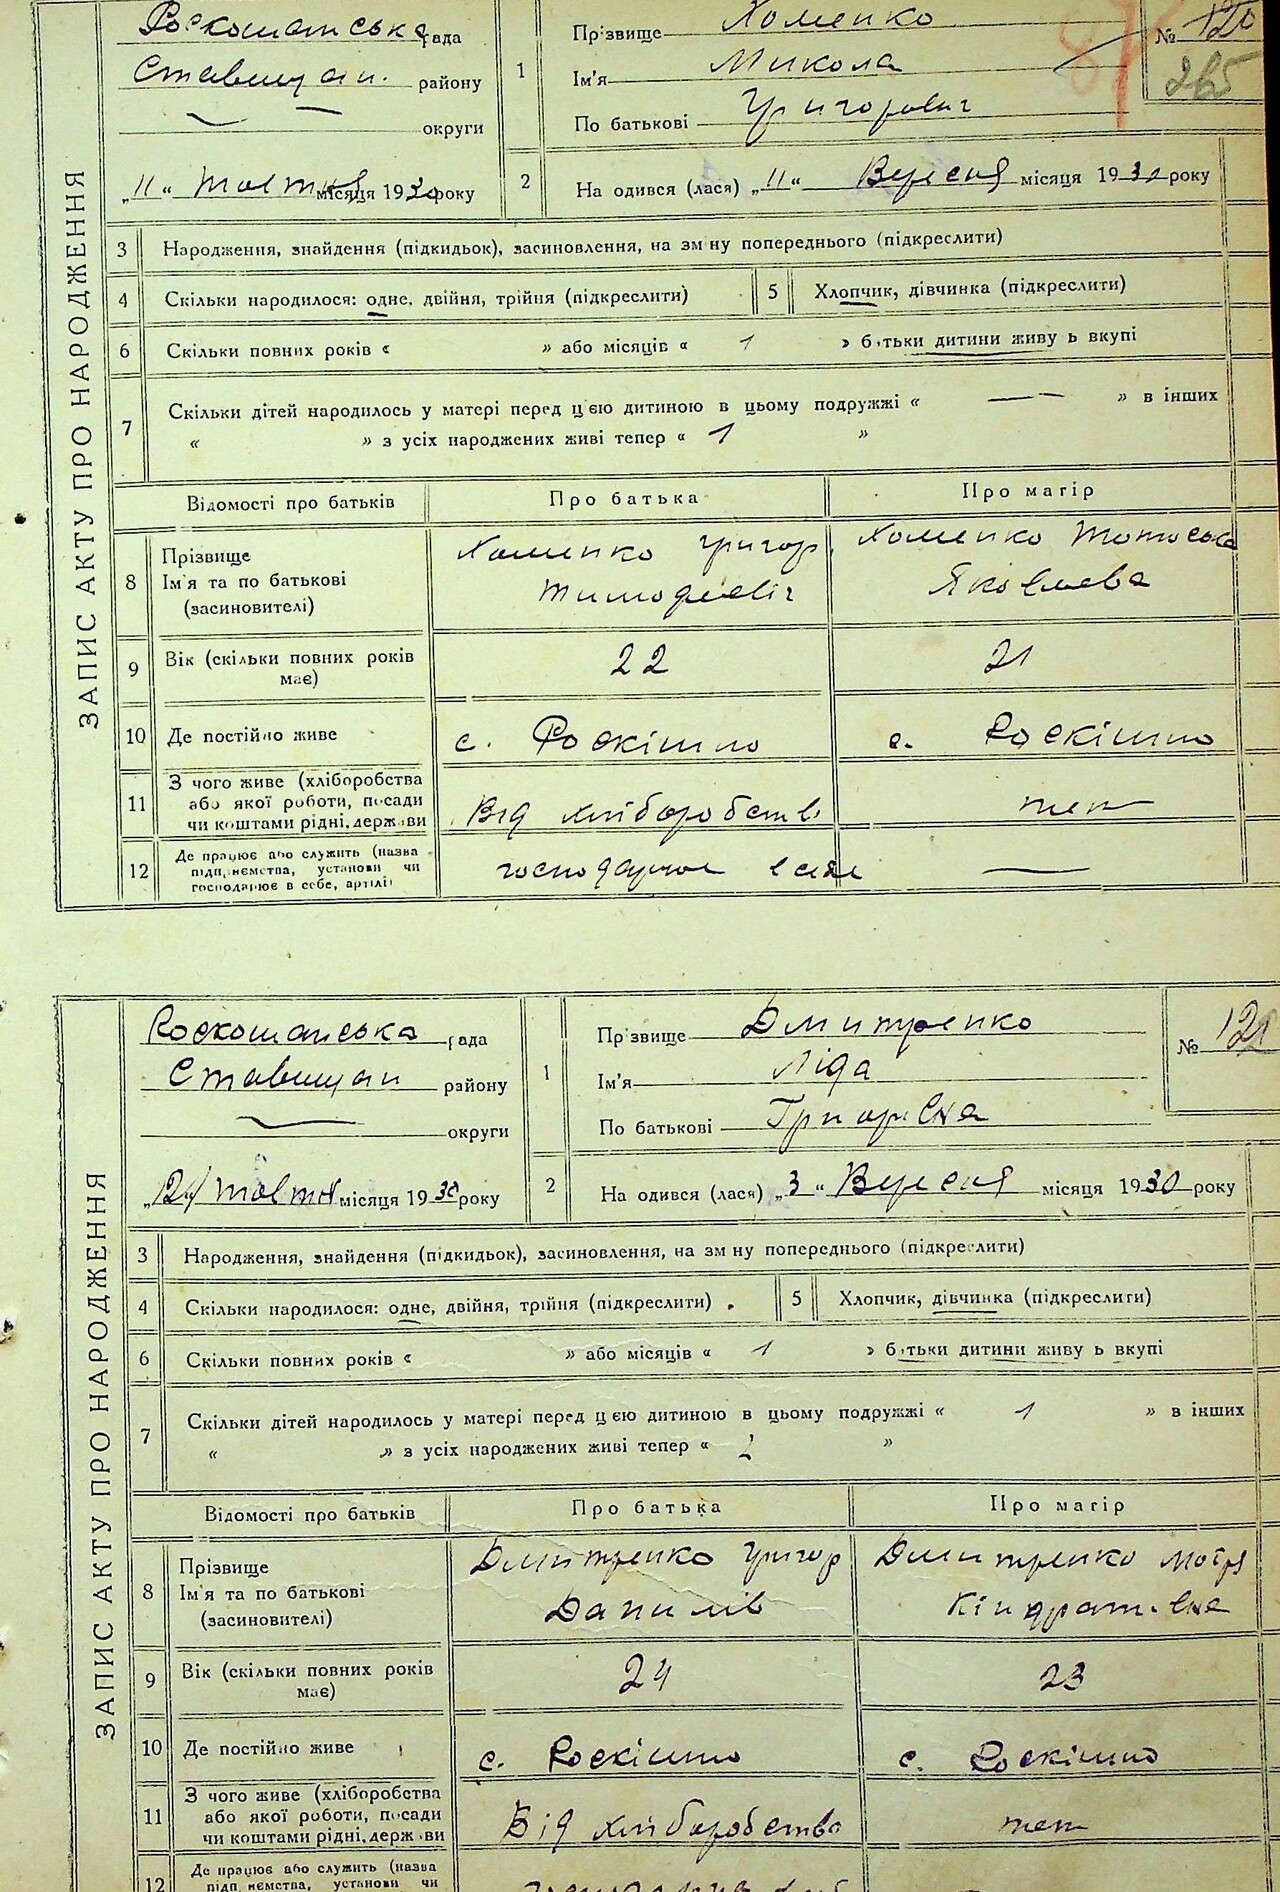 ЗАПИС АКТУ ПРО НАРОДЖЕННЯ
Роскошанська рада
Ставищан. району
округи
„11“ жовтня місяця 1930 року
1
Прізвище Хоменко
Ім'я Микола
По батькові Григорович
№ 120
265
2
На одився (лася) „11“ Вересня місяця 1930 року
3 Народження, знайдення (підкидьок), засиновлення, на зм ну попереднього (підкреслити)
4 Скільки народилося: одне, двійня, трійня (підкреслити)
5 Хлопчик, дівчинка (підкреслити)
6 Скільки повних років « » або місяців « 1 » батьки дитини живу ь вкупі
7 Скільки дітей народилось у матері перед цією дитиною в цьому подружжі « — » в інших
« » з усіх народжених живі тепер « 1 »
Відомості про батьків Про батька Про матір
8 Прізвище
Ім'я та по батькові
(засиновителі)
Хоменко Григор
Тимофієвіч
Хоменко
Яковлева
9 Вік (скільки повних років має) 22 21
10 Де постійно живе с. Роскішно с. Роскішно
11 З чого живе (хліборобства
або якої роботи, посади
чи коштами рідні, держ ви
Від хліборобств
теж
12 Де працює або служить (назва
підп иємства, установи чи
господарює в себе, артілі)
господарює в себе —
ЗАПИС АКТУ ПРО НАРОДЖЕННЯ
Роскошанська рада
Ставищан району
округи
жовтня місяця 1930 року
1
Прізвище Дмитренко
Ліда
Ім'я
По батькові Григорівна
№ 121
2
На одився (лася) „3“ Вересня місяця 1930 року
3 Народження, знайдення (підкидьок), засиновлення, на зм ну попереднього (підкреслити)
4 Скільки народилося: одне, двійня, трійня (підкреслити)
5 Хлопчик, дівчинка (підкреслити)
6 Скільки повних років « » або місяців « 1 » батьки дитини живу ь вкупі
7 Скільки дітей народилось у матері перед цією дитиною в цьому подружжі « 1 » в інших
« » з усіх народжених живі тепер « 2 »
Відомості про батьків Про батька Про матір
8 Прізвище
Ім'я та по батькові
(засиновителі)
Дмитренко Григор
Данилів
Дмитренко Мотря
Кіндратівна
9 Вік (скільки повних років має) 24 23
10 Де постійно живе с. Роскішно с. Роскішно
11 З чого живе (хліборобства
або якої роботи, посади
чи коштами рідні, держ ви
Від хліборобства
теж
12 Де працює або служить (назва
підп иємства, установи чи